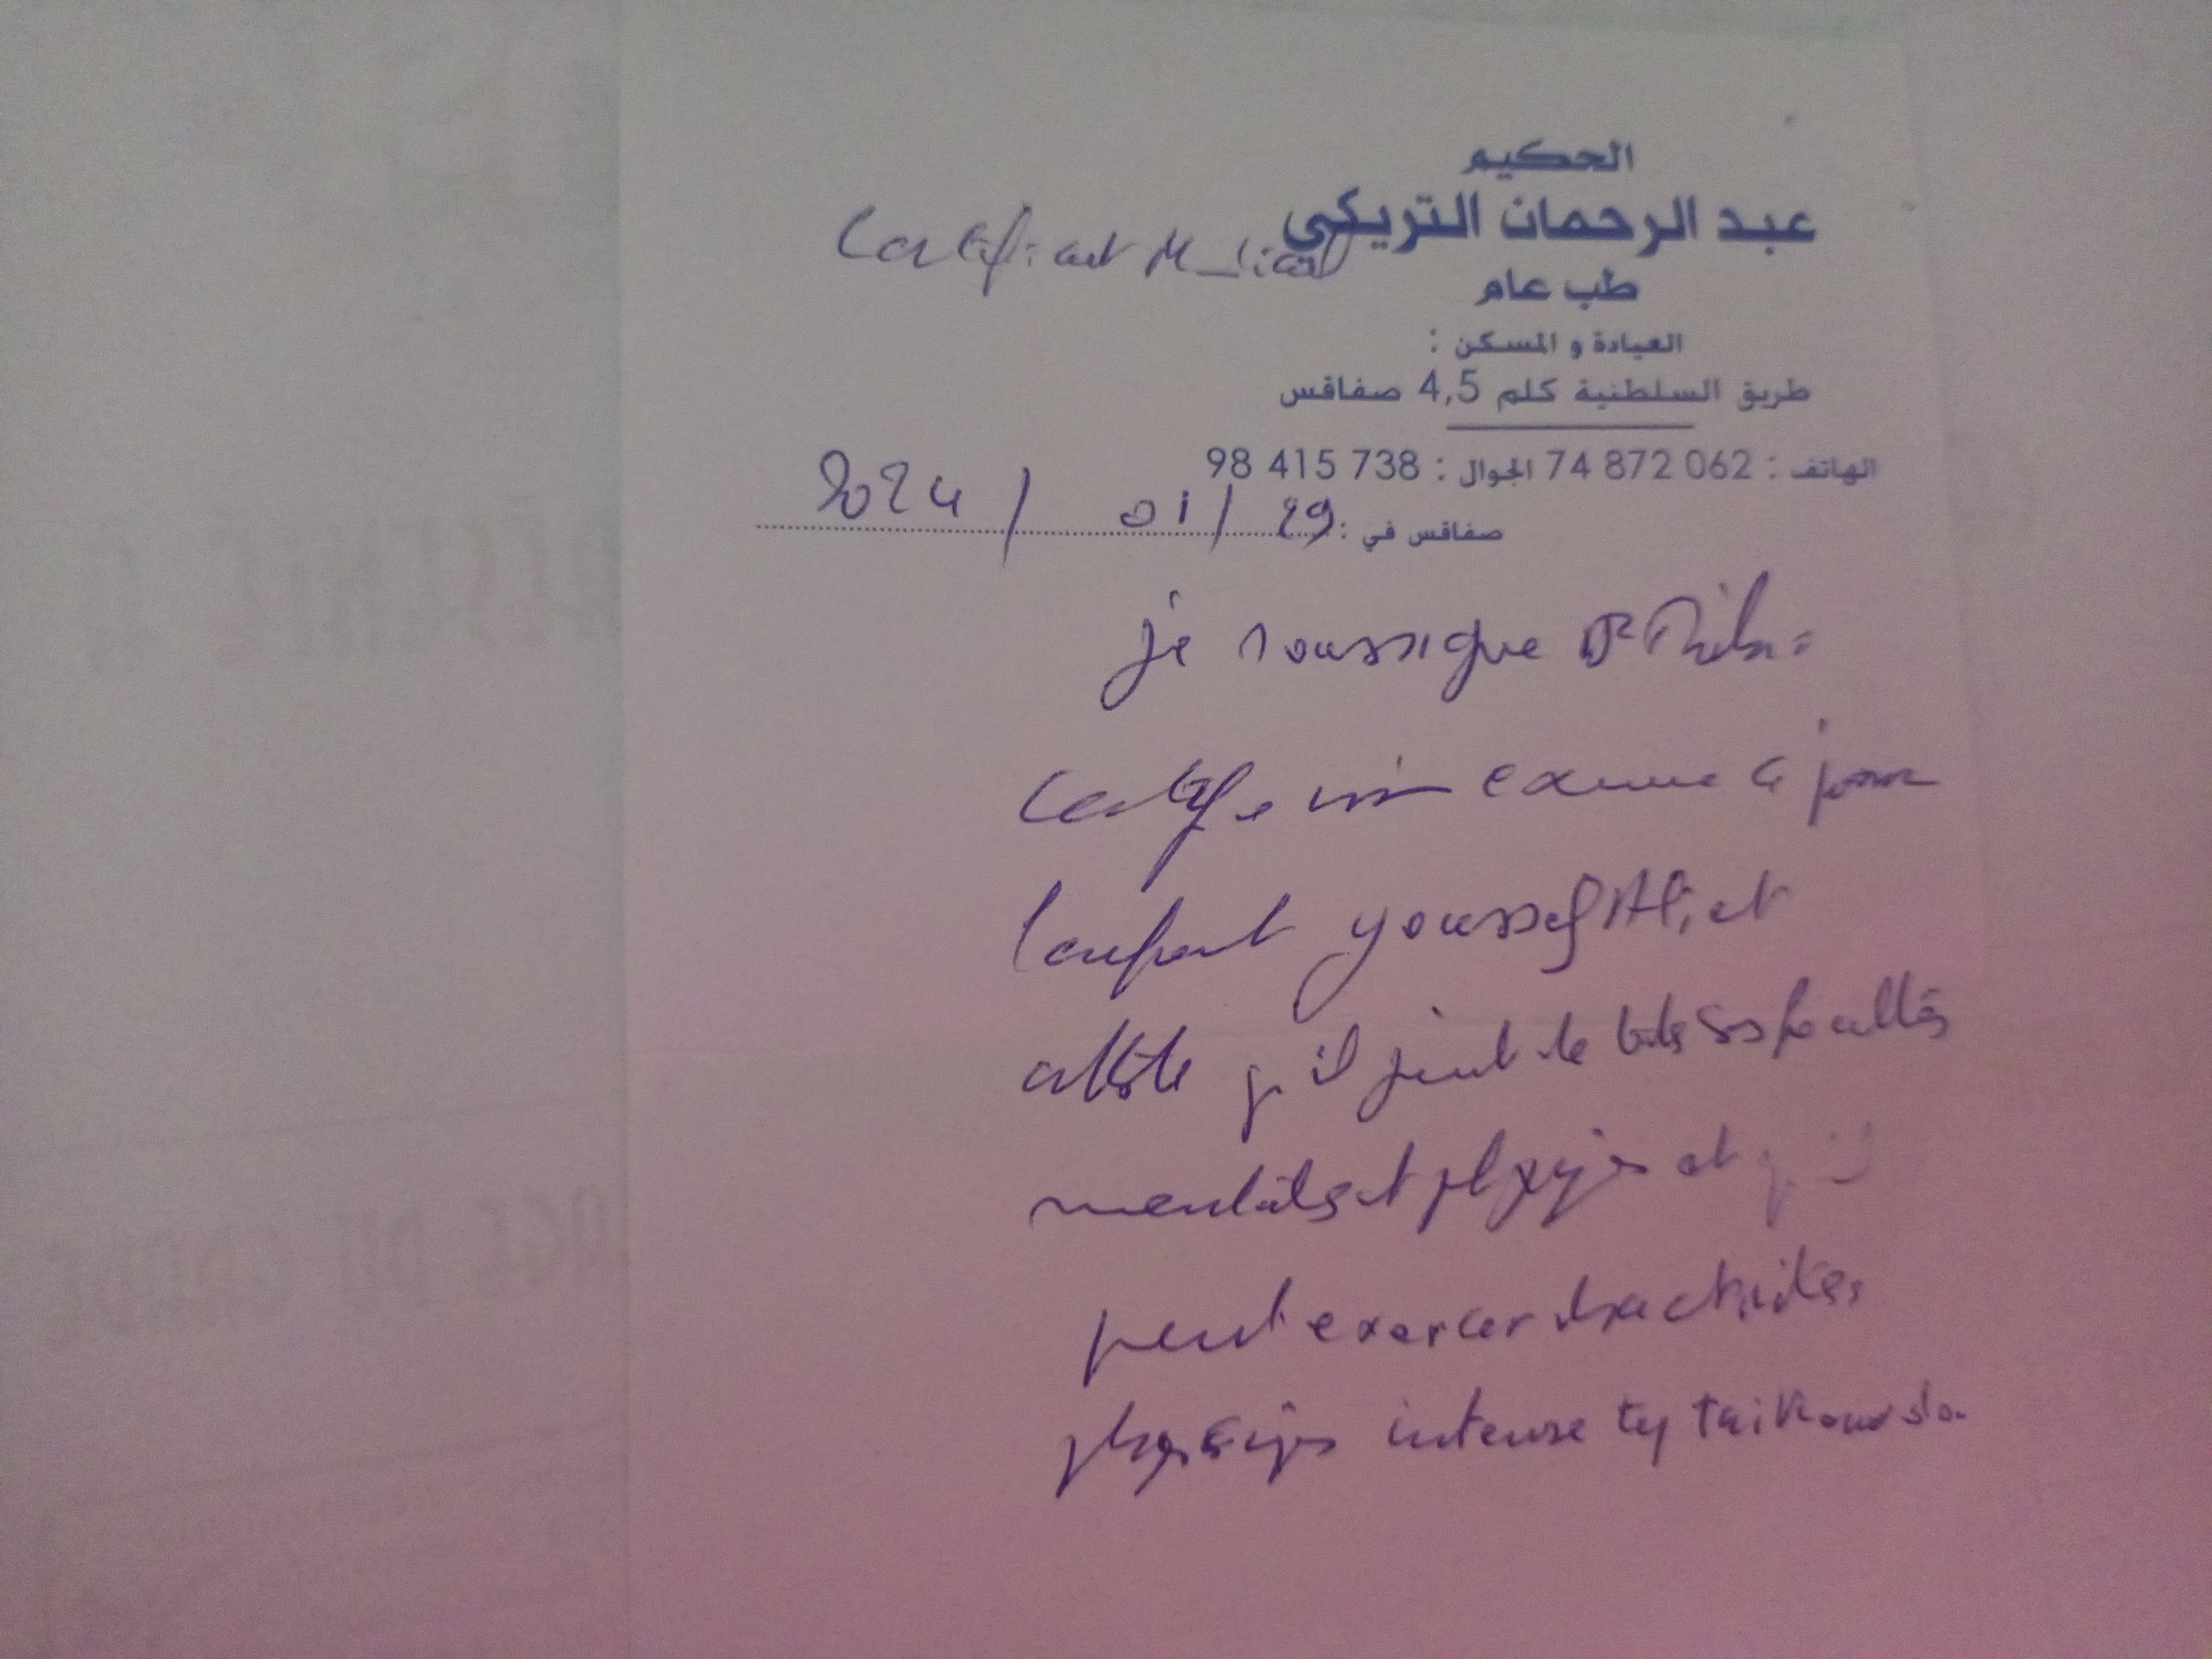 الحكيم
عبد الرحمان التريكي
Certificat Medical
طب عام
العيادة و المسكن :
طريق السلطنية كلم 4,5 صفاقس
الهاتف : 74 872 062 الجوال : 98 415 738
صفاقس في : 29 / 01 / 2024
je soussigne Dr
certifie avoir examine ce jour
l'enfant youssef Ali et
atteste qu'il jouit de toutes ses facultés
mentales et physiques et qu'il
peut exercer des activités
physiques intense taikowndo